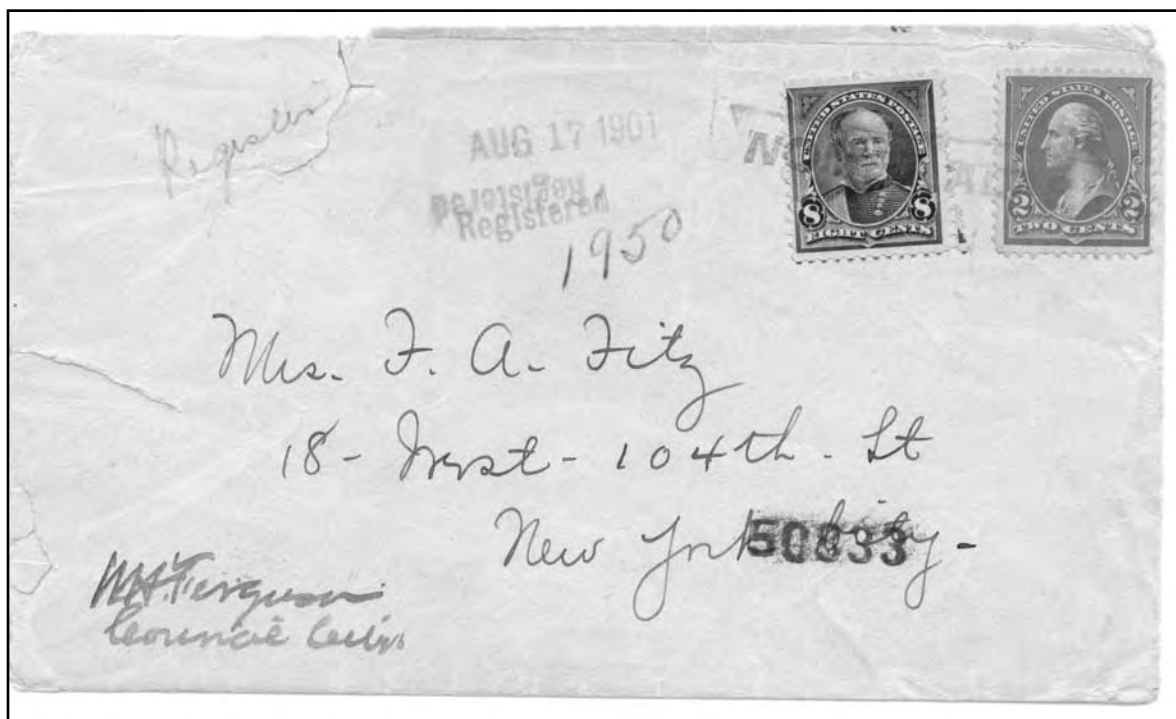 Register
AUG 17 1901
Registered
Registered
1950
UNITED STATES POSTAGE
8 8
EIGHT CENTS
UNITED STATES POSTAGE
2 2
TWO CENTS
Mrs. F. A. Fitz
18 - West - 104th - St
New York City -
50833
Ferguson
Council City